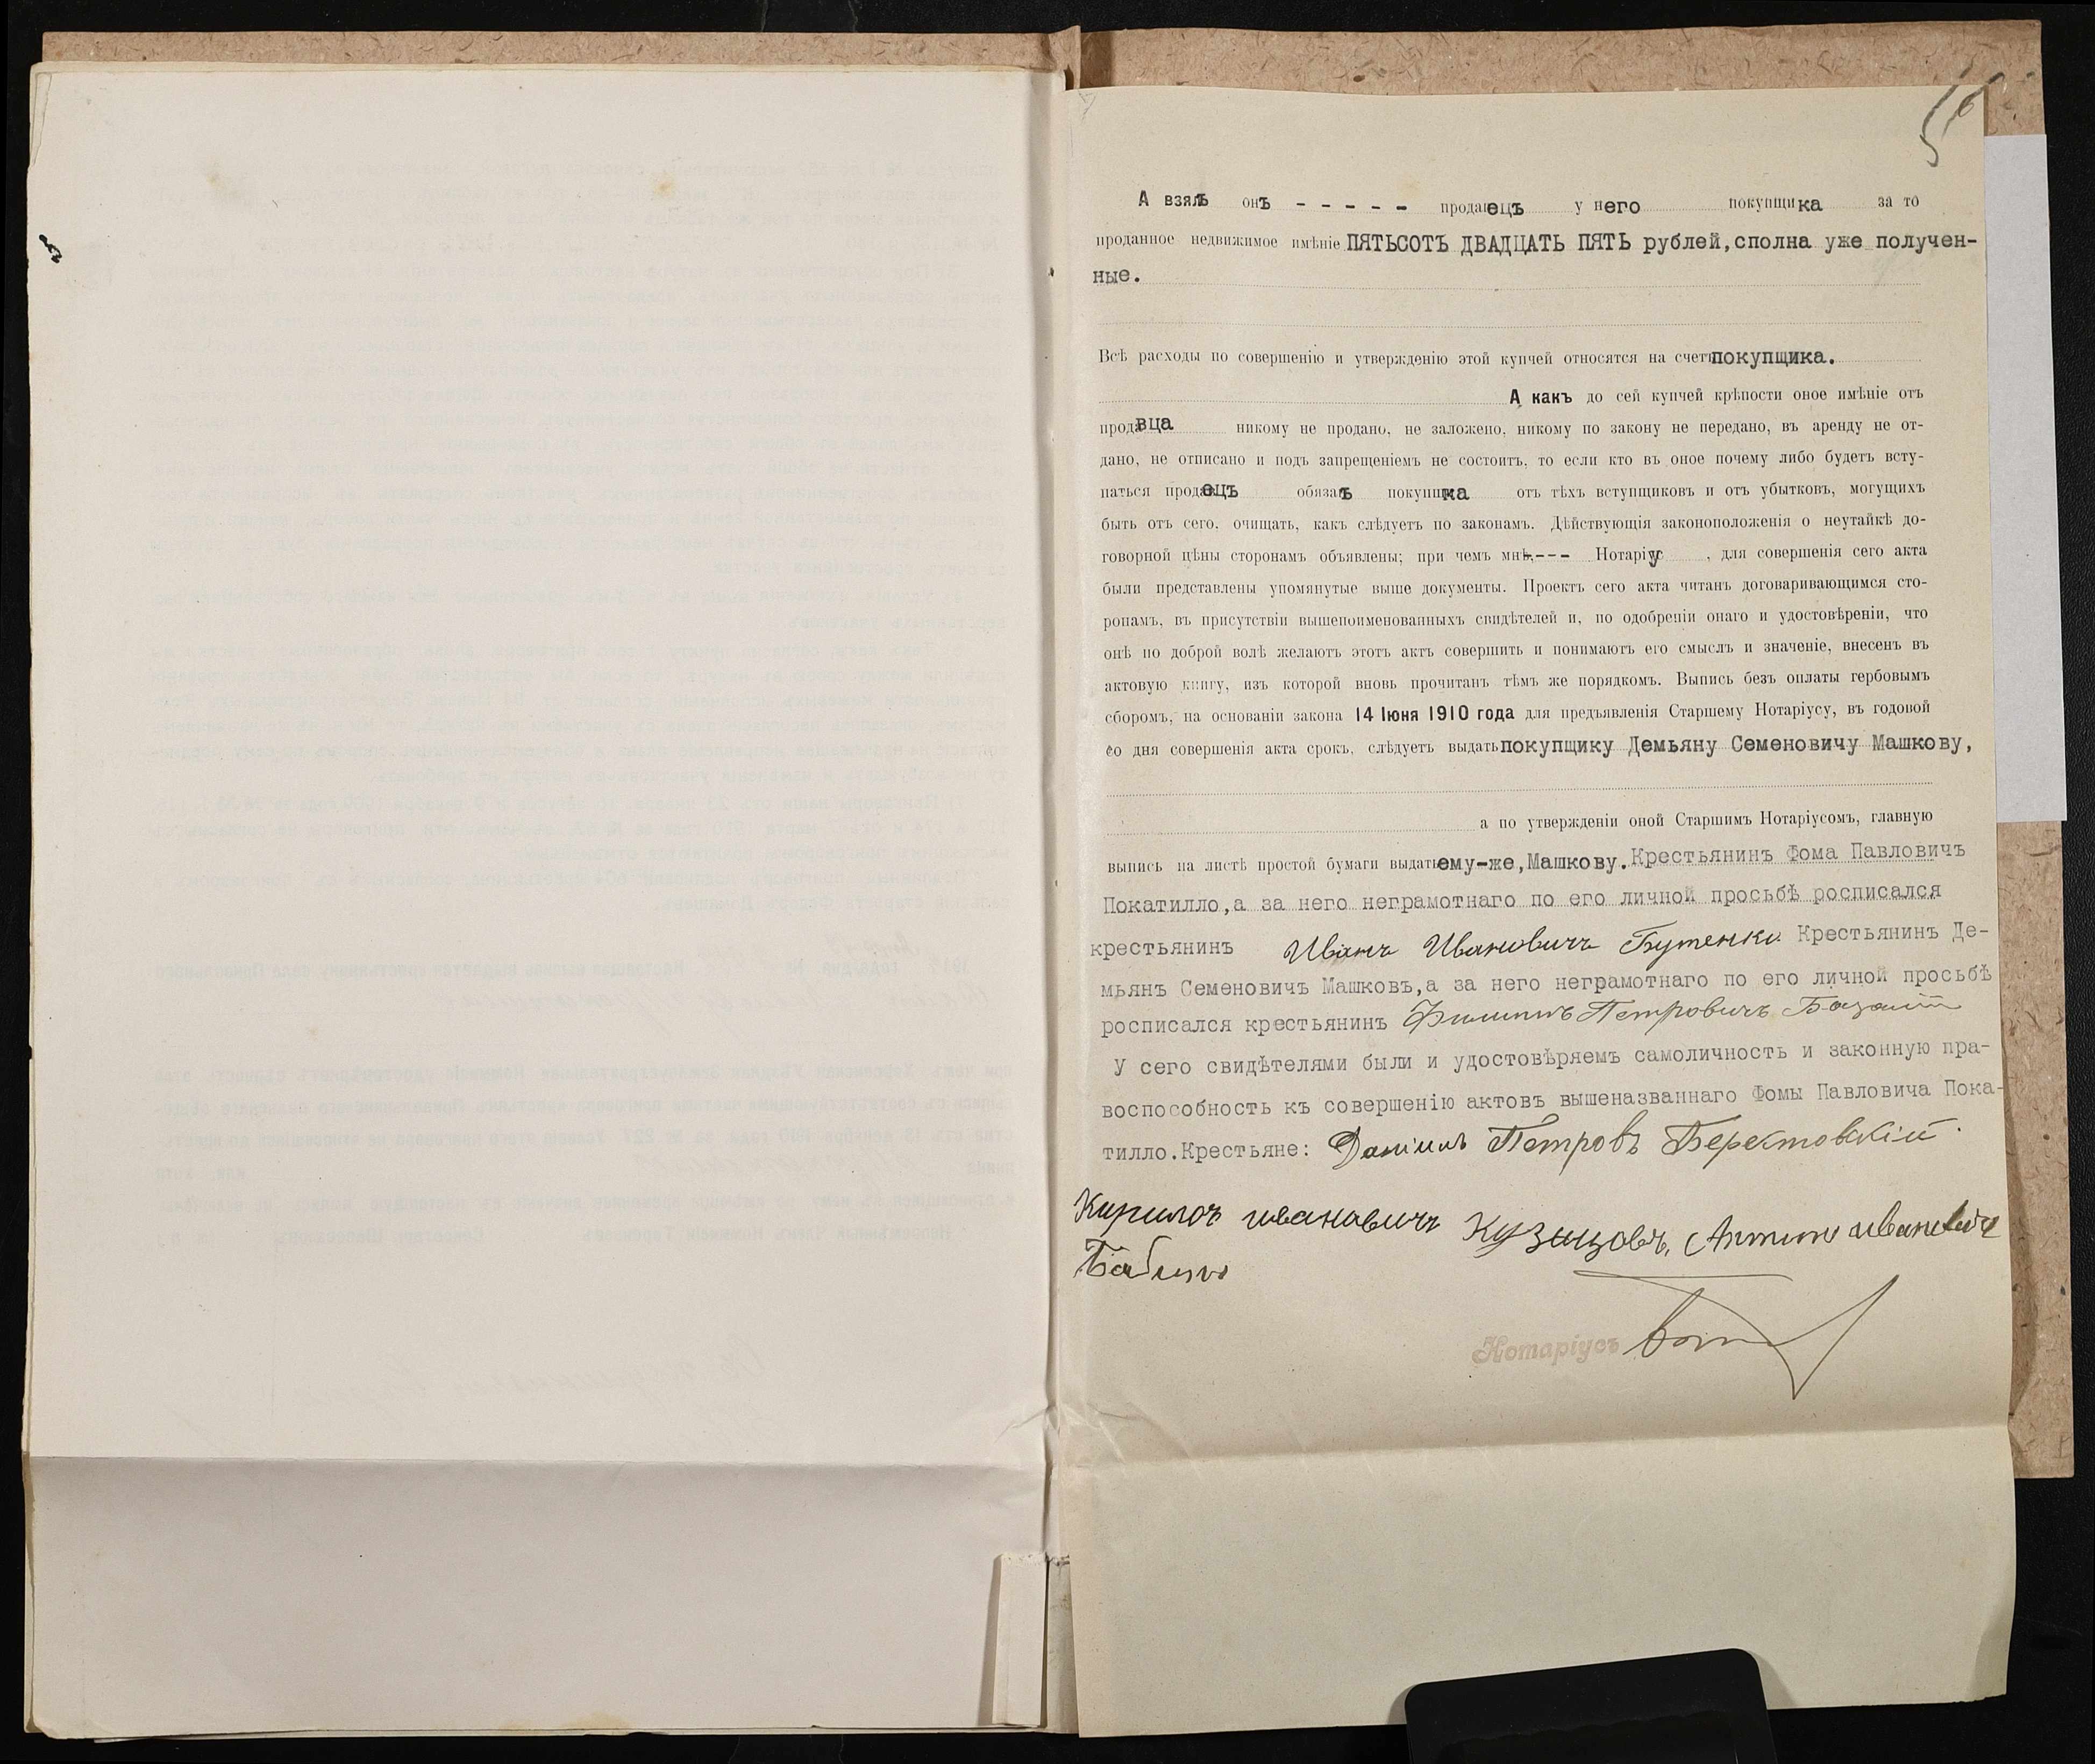 А взялъ онъ - - - - - продавецъ у него покупщика за то
проданное недвижимое имѣніе ПЯТЬСОТЪ ДВАДЦАТЬ ПЯТЬ рублей, сполна уже получен-
ные.
Всѣ расходы по совершенію и утвержденію этой купчей относятся на счетъ покупщика.
А какъ до сей купчей крѣпости оное имѣніе отъ
продавца никому не продано, не заложено, никому по закону не передано, въ аренду не от-
дано, не отписано и подъ запрещеніемъ не состоитъ, то если кто въ оное почему либо будетъ всту-
паться продавецъ обязанъ покупщика отъ тѣхъ вступщиковъ и отъ убытковъ, могущихъ
быть отъ сего, очищать, какъ слѣдуетъ по законамъ. Дѣйствующія законоположенія о неутайкѣ до-
говорной цѣны сторонамъ объявлены; при чемъ мнѣ,--- Нотаріусу, для совершенія сего акта
были представлены упомянутые выше документы. Проектъ сего акта читанъ договаривающимся сто-
ронамъ, въ присутствіи вышепоименованныхъ свидѣтелей и, по одобреніи онаго и удостовѣреніи, что
онѣ по доброй волѣ желаютъ этотъ актъ совершить и понимаютъ его смыслъ и значеніе, внесенъ въ
актовую книгу, изъ которой вновь прочитанъ тѣмъ же порядкомъ. Выпись безъ оплаты гербовымъ
сборомъ, на основаніи закона 14 Іюня 1910 года для предъявленія Старшему Нотаріусу, въ годовой
со дня совершенія акта срокъ, слѣдуетъ выдать покупщику Демьяну Семеновичу Машкову,
а по утвержденіи оной Старшимъ Нотаріусомъ, главную
выпись на листѣ простой бумаги выдать ему-же, Машкову. Крестьянинъ Фома Павловичъ
Покатилло, а за него неграмотнаго по его личной просьбѣ росписался
крестьянинъ Иванъ Ивановичъ Бутенко. Крестьянинъ Де-
мьянъ Семеновичъ Машковъ, а за него неграмотнаго по его личной просьбѣ
росписался крестьянинъ Филиппъ Петровичъ
У сего свидѣтелями были и удостовѣряемъ самоличность и законную пра-
воспособность къ совершенію актовъ вышеназваннаго Фомы Павловича Пока-
тилло. Крестьяне: Даніилъ Петровъ
иванавичъ Антонъ ивановичъ
Нотаріусъ